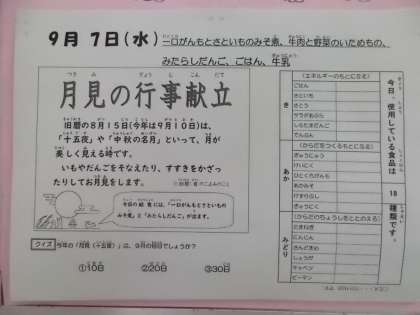 9月 7日(水) 一口がんもとさといものみそ煮、牛肉と野菜のいためもの、
みたらしだんご、ごはん、牛乳
月見の行事献立
つきみ ぎょうじこんだて
旧暦の8月15日(今年は9月10日)は、
「十五夜」や「中秋の名月」といって、月が
美しく見える時です。
いもやだんごをそなえたり、すすきをかざっ
たりしてお月見をします。
今日の給食には、「一口がんもとさといもの
みそ煮」と「みたらしだんご」が出ます。
クイズ 今年の「月見(十五夜)」は、9月の何日でしょうか?
①10日 ②20日 ③30日
今日、使用している食品は 18 種類です。
き
(エネルギーのもとになる)
ごはん
さといも
さとう
でんぷん
あか
(からだをつくるもとになる)
ぎゅうにゅう
けいにく
ひとくちがんも
あかみそ
ぎゅうにく
みどり
(からだのちょうしをととのえる)
たまねぎ
にんじん
しょうが
キャベツ
ピーマン